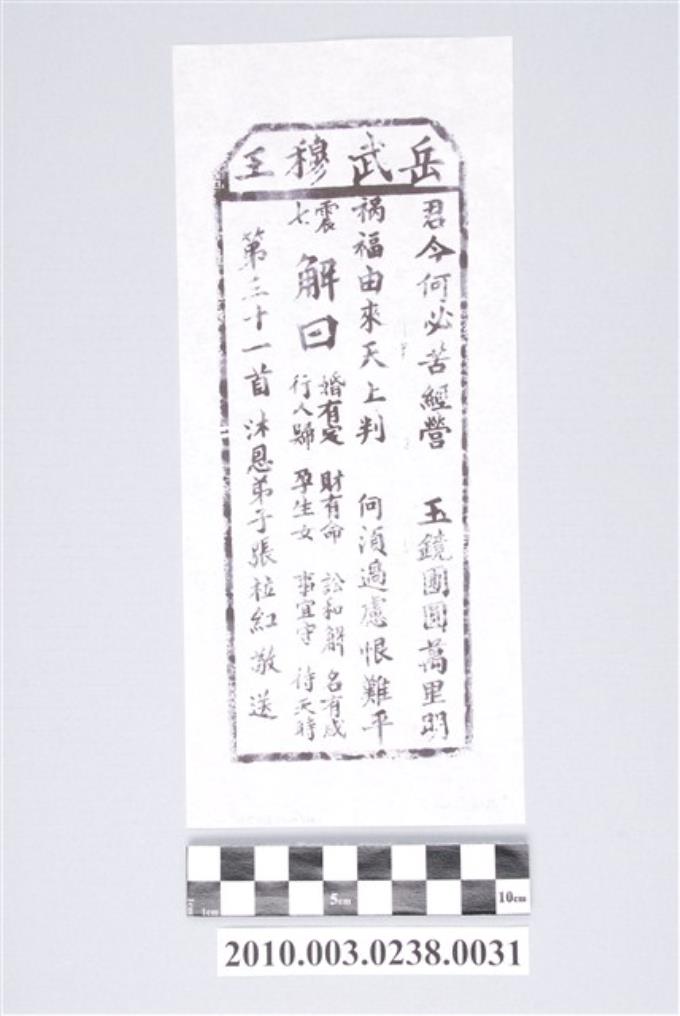 岳武穆王
君今何必苦經營 玉鏡團圓萬里明
禍福由來天上判 何須過慮恨難平
震七
解曰
婚有定 財有命 訟和解 名有成
行人歸 孕生女 事宜守 待天時
第三十一首 沐恩弟子張 紅敬送
1cm 5cm 10cm
2010.003.0238.0031